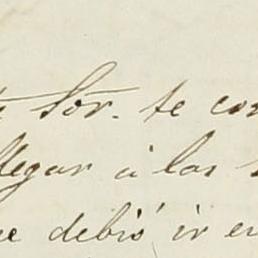 Sor. te con
llegar á las
ue debió ir en